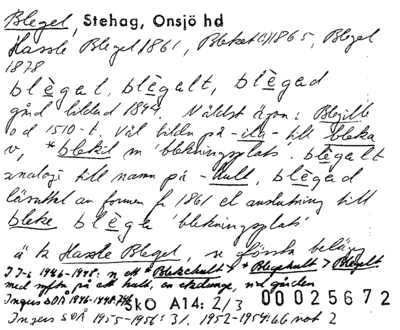 Blegel, Stehag, Onsjö hd
Hassle Blegel 1861, Bleket 1865, Blegel
1878
blègal, blègalt, blègad
gård bildad 1844. Näldst ägon: Blegille
o d 1510-t. Väl bildn på -ila- till bleka
v, *blekil m 'blekningsplats'. blègalt
analogi till namn på -hult, blègad
lärsuttal av formen fr 1861 el anslutning till
bleke blèga 'blekningsplats'
ä tz Hassle Blegel, n första belägg
1946-1948: n ett *Blekehult > *Blegehult > Blegelt
med syftn på ett hult, en skoduge, vid gården
Ingers SOÅ 1946-1948: SkO A14: 2/3 00025672
Ingers SOÅ 1955-1956: 31, 1952-1954: 66 not 2